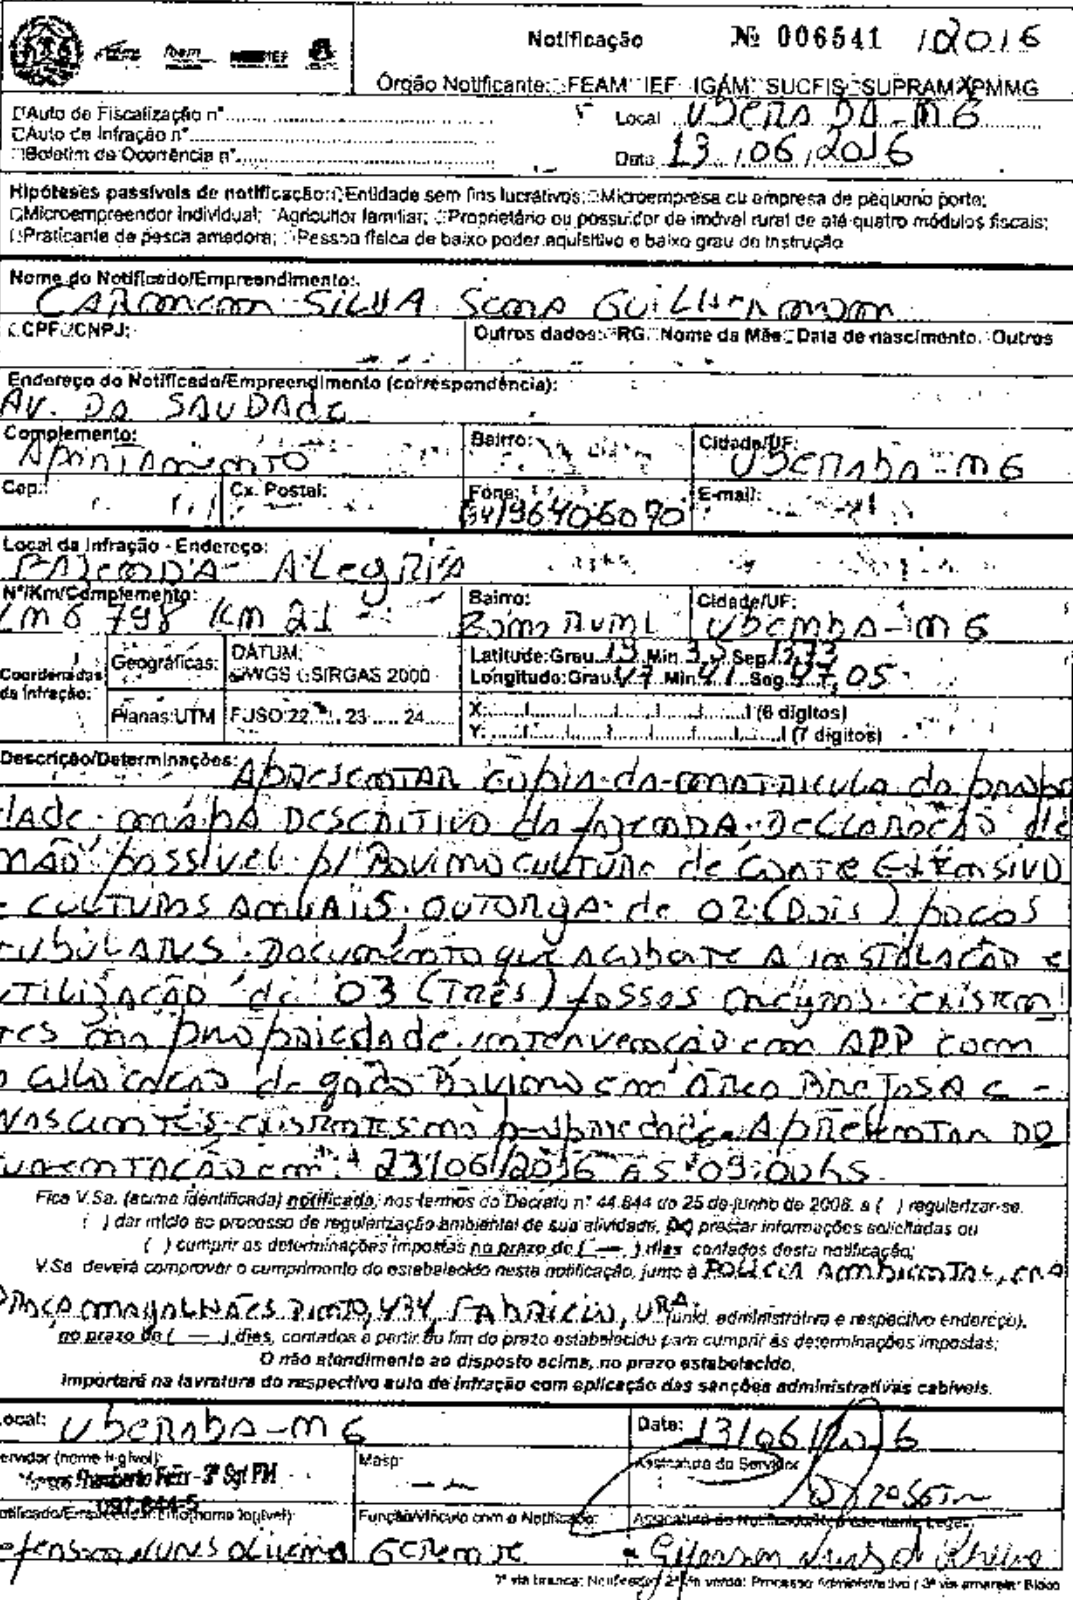 Notificação Nº 006541 / 2016
Órgão Notificante: FEAM IEF IGAM SUCFIS SUPRAM X PMMG
Auto de Fiscalização nº
Auto de Infração nº
Boletim de Ocorrência nº
Local UBERABA-MG
Data 13/06/2016
Hipóteses passíveis de notificação: Entidade sem fins lucrativos; Microempresa ou empresa de pequeno porte;
Microempreendor Individual; Agricultor familiar; Proprietário ou possuidor de imóvel rural de até quatro módulos fiscais;
Praticante de pesca amadora; Pessoa física de baixo poder aquisitivo e baixo grau de instrução
Nome do Notificado/Empreendimento:
SILVA
CPF CNPJ:
Outros dados: RG Nome da Mãe Data de nascimento. Outros
Endereço do Notificado/Empreendimento (correspondência):
AV. DA SAUDADE
Complemento: Bairro: Cidade/UF:
Apartamento UBERABA-MG
Cep: Cx. Postal: Fone: E-mail:
(34) 96406070
Local da Infração - Endereço:
FAZENDA ALEGRIA
Nº/Km/Complemento: Bairro: Cidade/UF:
LMG 798 KM 21 Zona Rural Uberaba-MG
Coordenadas da Infração:
Geográficas: DATUM: WGS SIRGAS 2000
Latitude: Grau 19 Min 35 Seg
Longitude: Grau 47 Min 41 Seg 47,05
Planas: UTM FUSO: 22 23 24
X: (6 digitos)
Y: (7 digitos)
Descrição/Determinações: Apresentar cópia da matricula da proprie
dade mapa DESCRITIVO da fazenda. DECLARAÇÃO de
NÃO possível p/ Bovinocultura de Corte EXTENSIVO
e CULTURAS ANUAIS. OUTORGA de 02 (Dois) poços
TUBULARES. Documento que acoberte A INSTALAÇÃO e
UTILISAÇÃO de 03 (Três) fossas existen
tes na propriedade intervenção em APP com
a colocação de gado Bovino em área BREJOSA e
NASCENTES existentes na propriedade. Apresentar DO
CUMENTAÇÃO em 23/06/2016 AS 09:00hs
Fica V.Sa. (acima identificada) notificado, nos termos do Decreto nº 44.844 do 25 de junho de 2008. a ( ) regularizar-se.
( ) dar início ao processo de regularização ambiental de sua atividade, (X) prestar informações solicitadas ou
( ) cumprir as determinações impostas no prazo de ( — ) dias contados desta notificação;
V.Sa deverá comprovar o cumprimento do estabelecido neste notificação, junto à POLÍCIA AMBIENTAL,
PRAÇA MAGALHÃES PINTO, 434, FABRICIO, URA (unid. administrativa e respectivo endereço),
no prazo de ( — ) dias, contados a partir do fim do prazo estabelecido para cumprir às determinações impostas;
O não atendimento ao disposto acima, no prazo estabelecido,
importará na lavratura do respectivo auto de infração com aplicação das sanções administrativas cabíveis.
Local: UBERABA-MG Data: 13/06/2016
Servidor (nome legível): Masp: Assinatura do Servidor
3º Sgt PM —
097.844-5
Notificado/Empreendimento (nome legível): Função/Vínculo com o Notificado: Assinatura do Notificado/Representante Legal
Jefenson NUNES OLIVEIRA GERENTE
1ª via branca: Notificado / 2ª via verde: Processo Administrativo / 3ª via amarela: Bloco